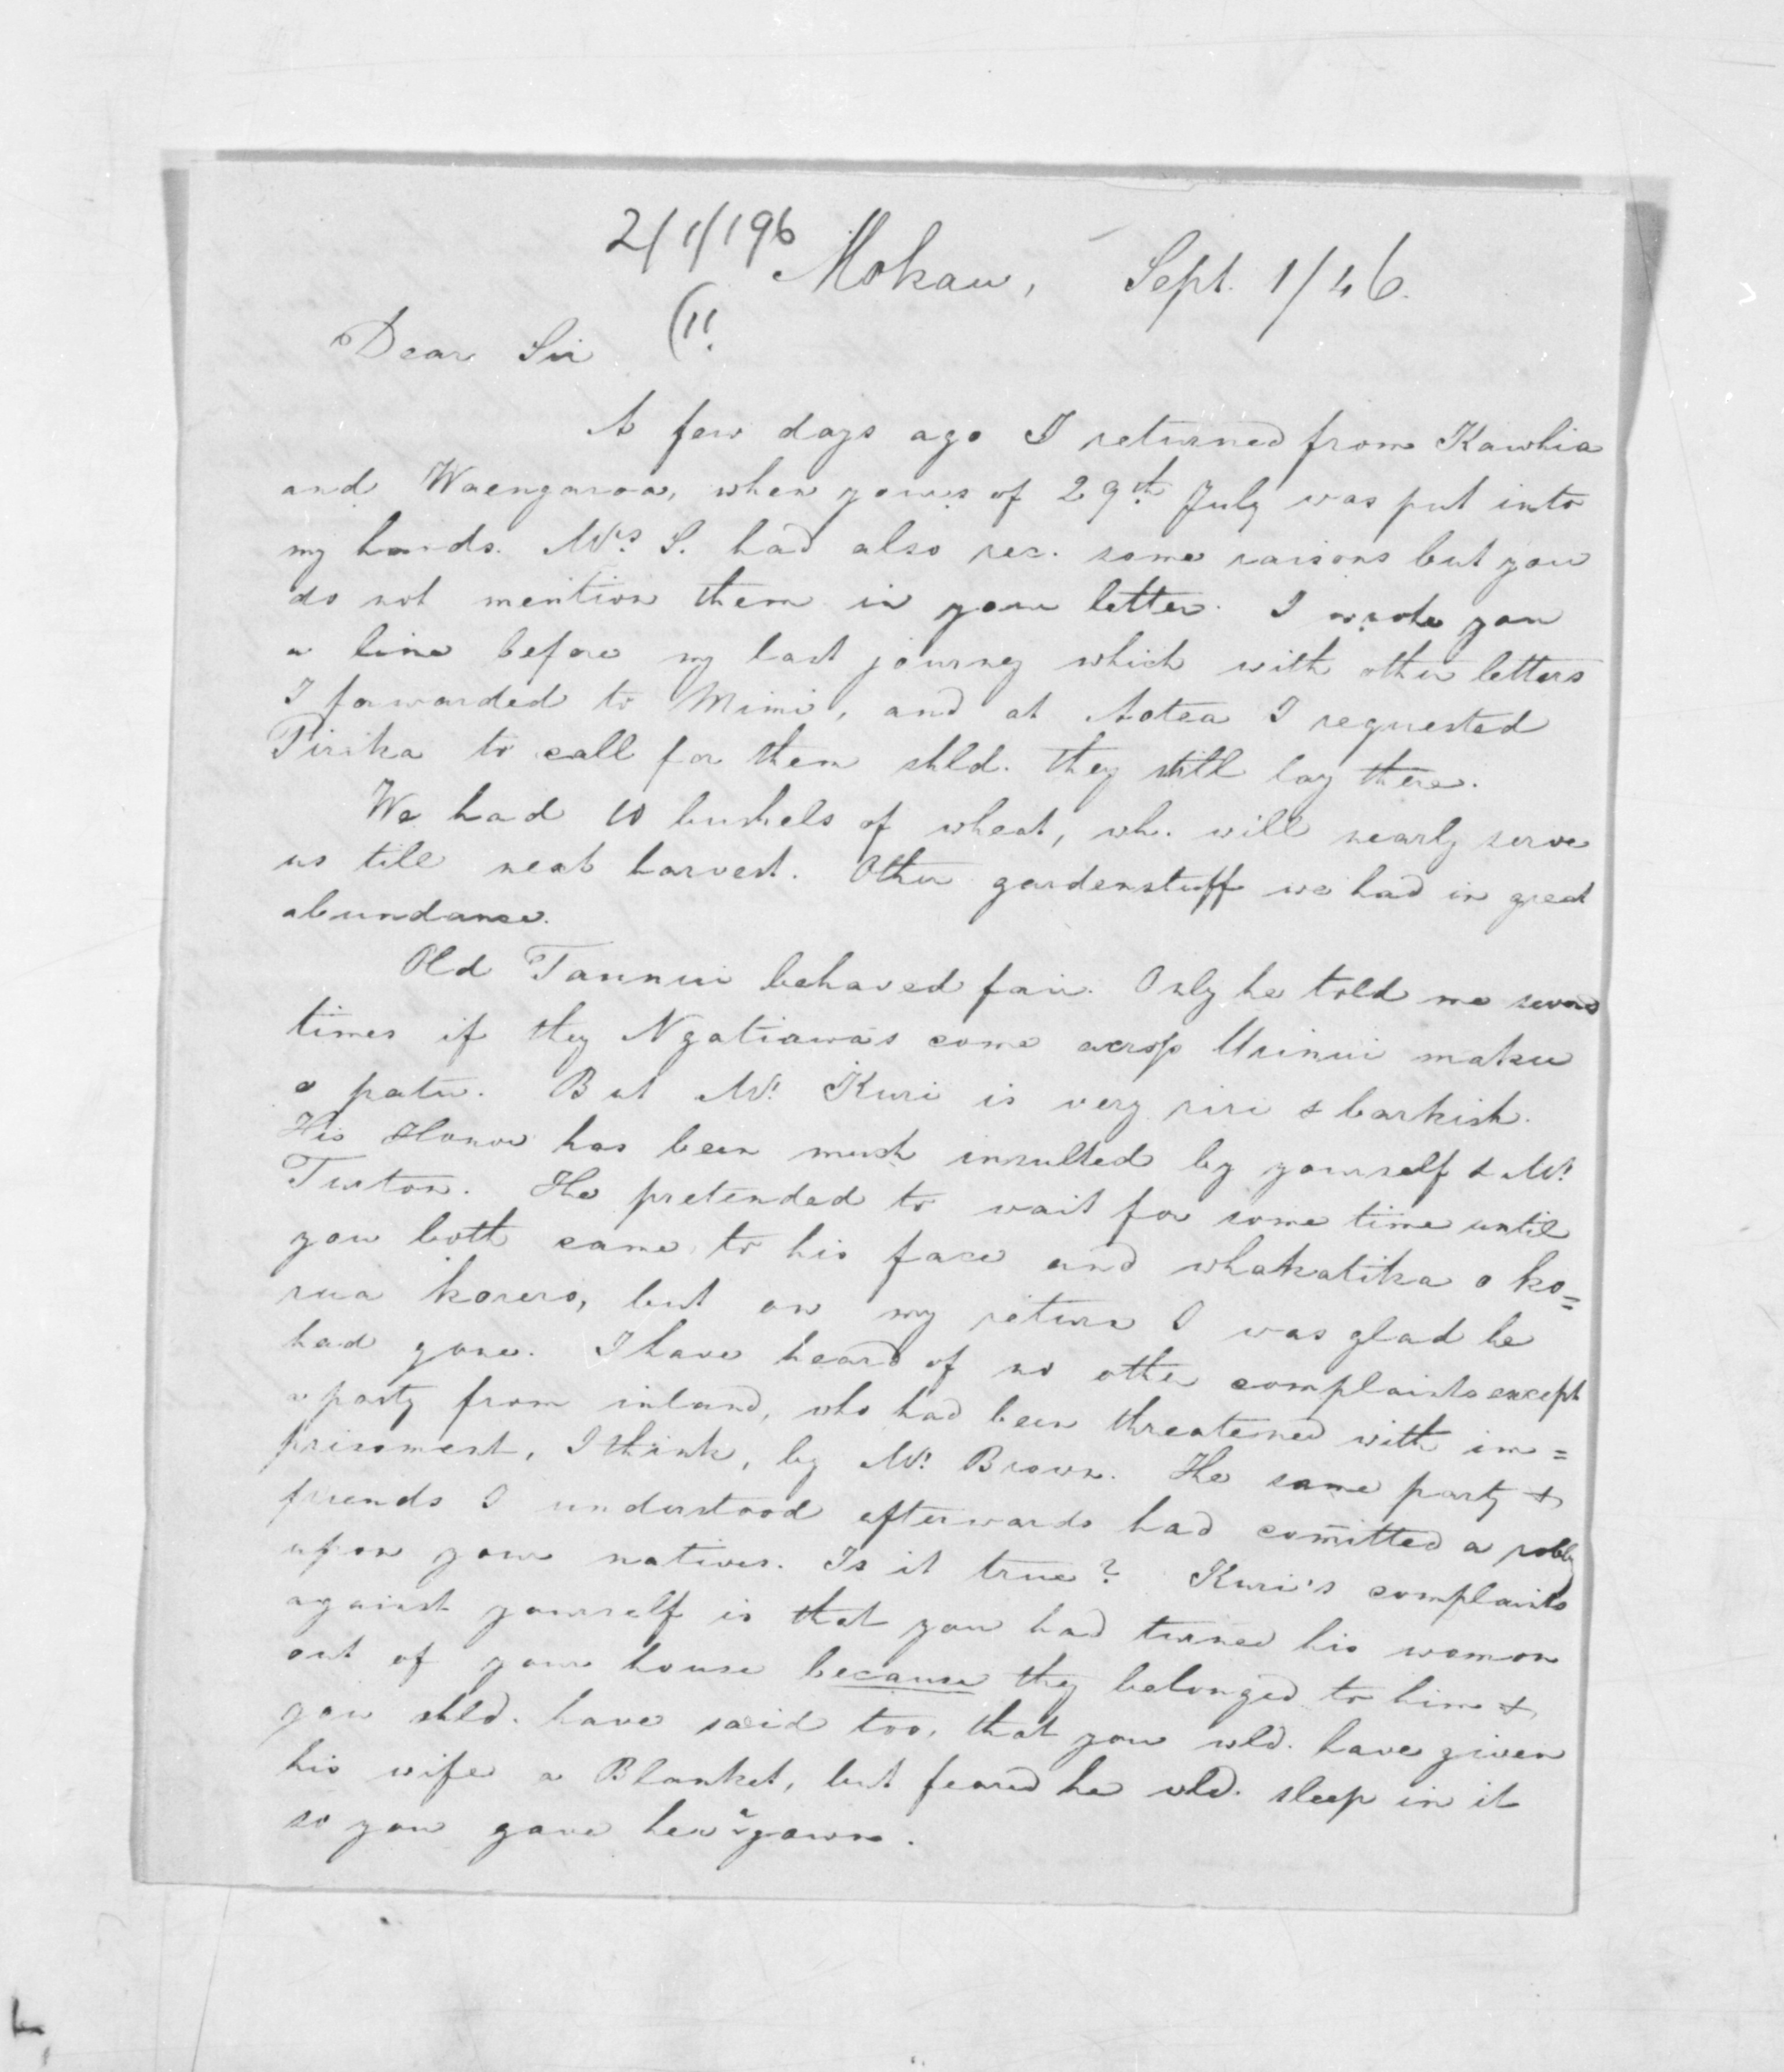 2/1/196
Mokau, Sept. 1/46.
(1!
Dear Sir
A few days ago I returned from Kawhia
and Waengaroa, when yours of 29th July was put into
my hands. Mrs. S. had also rec. some raisons but you
do not mention them in your letter. I wrote you
a line before my last journey which with other letters
I forwarded to Mimi, and at Aotea I requested
Pirika to call for them shld. they still lay there.
We had 10 bushels of wheat, wh. will nearly serve
us till next harvest. Other gardenstuff we had in great
abundance.
Old Tannui behaved fair. Only he told me
times if they Ngatiawa's come across Urinui maku
e patu. But Mr. Kuri is very riri & barkish.
His Honour has been much insulted by yourself & Mr.
Turton. He pretended to wait for some time until
you both came to his face and whakatika o ko=
rua korero, but on my return I was glad he
had gone. I have heard of no other complaints except
a party from inland, who had been threatened with im=
prisonment, I think, by Mr. Brown. The same party &
friends I understood afterwards had comitted a
upon your natives. Is it true? Kuri's complaints
against yourself is that you had turned his woman
out of your house because they belonged to him &
you shld. have said too, that you wld. have given
his wife a Blanket, but feared he wld. sleep in it
so you gave her a gown.